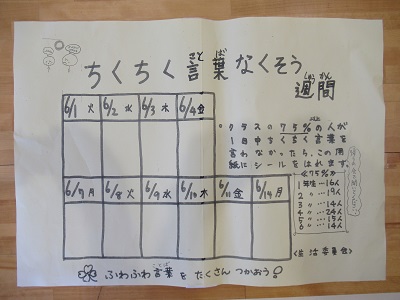 ちくちく言葉なくそう
こと ば
週間
しゅう かん
6/1火 6/2水 6/3木 6/4金
6/7月 6/8火 6/9水 6/10木 6/11金 6/14月
・クラスの75%の人が
1日中ちくちく言葉を
言わなかったら、この用
紙にシールをはれます。
<75%が>
1年生…16人
2 〃 …19人
3 〃 …14人
4 〃 …24人
5 〃 …15人
6 〃 …14人
(生活委員会)
ふわふわ言葉をたくさんつかおう!
ことば